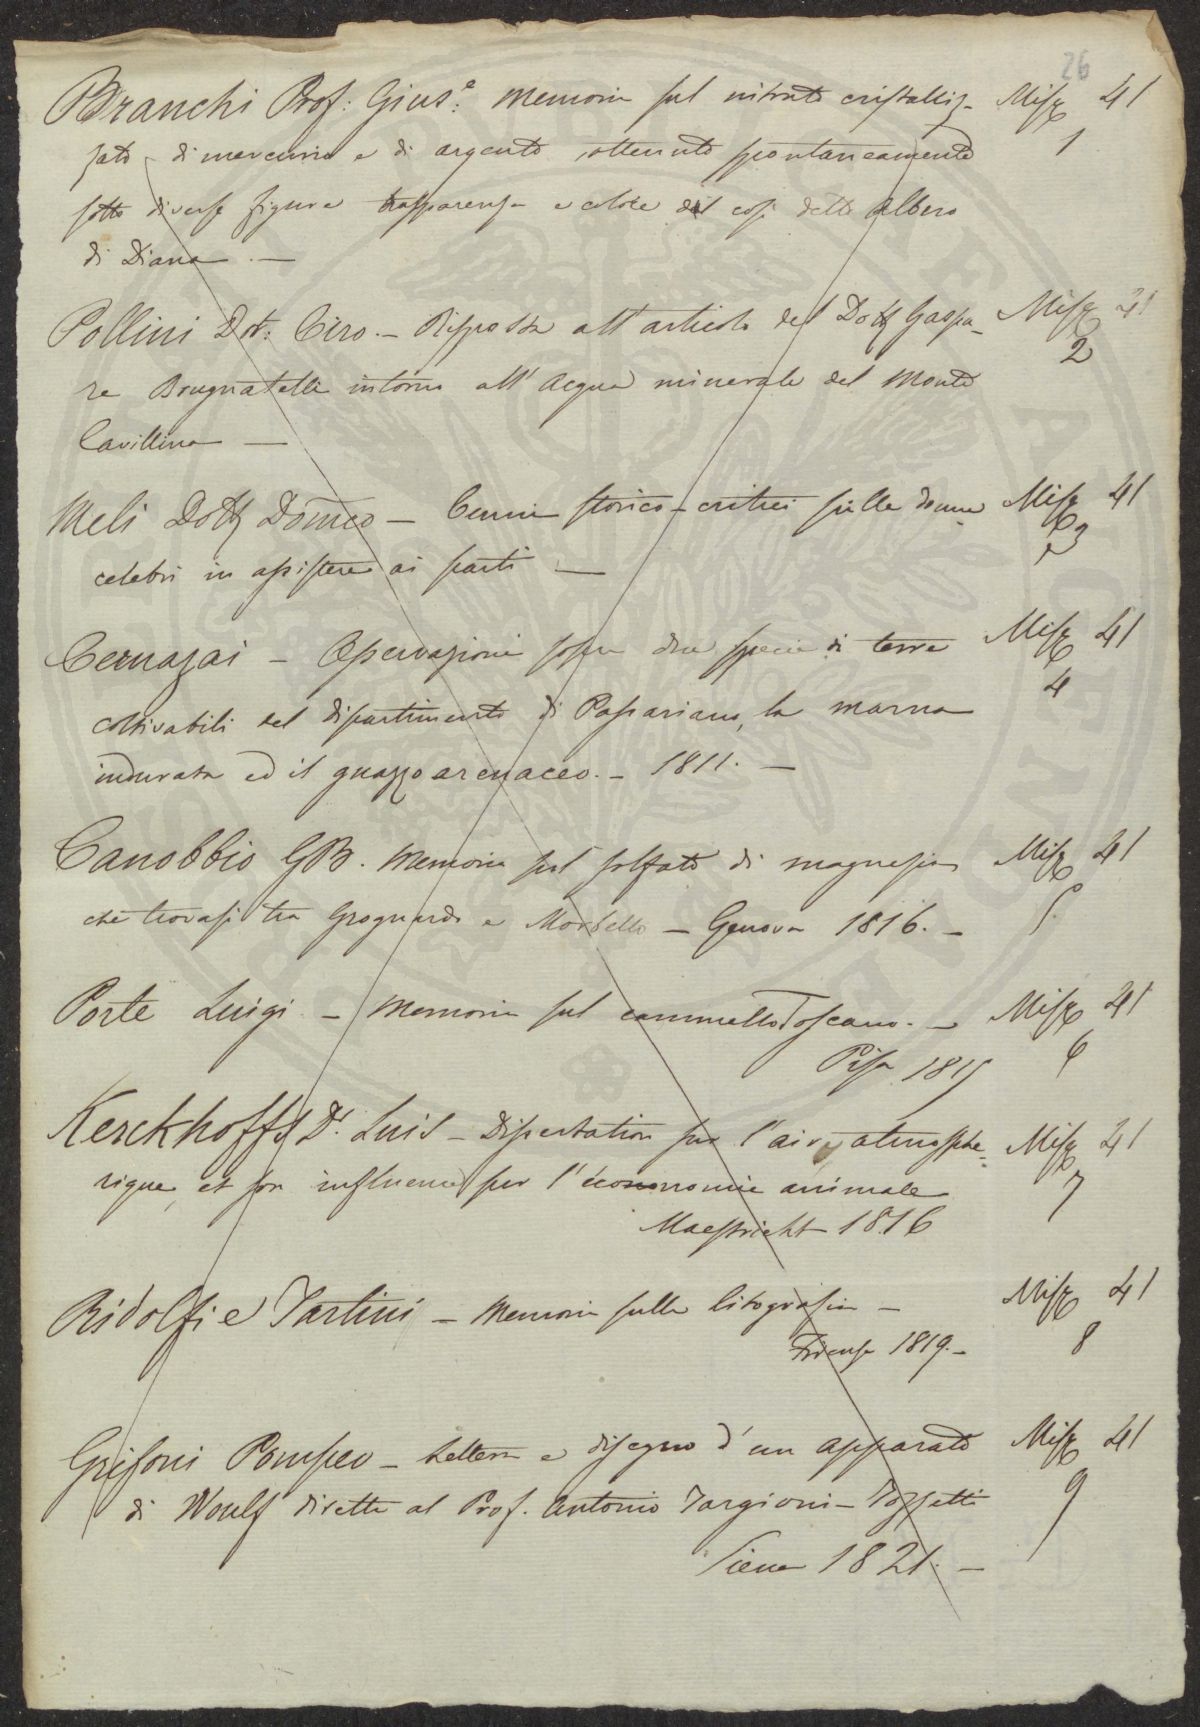 26
Branchi Prof: Gius.e Memoria sul nitrato cristalliz- Misc 41
zato di mercurio e di argento ottenuto spontaneamente 1
sotto diverse figure trasparenza e colore del così detto albero
di Diana. —
Pollini Dot: Ciro. — Risposta all'articolo del Dott Gaspa- Misc 41
re Brugnatelli intorno all'acqua minerale del Monte 2
Cavillina —
Meli Dott Domco — Cenni storico-critici sulle donne Misc 41
celebri in assistere ai parti — 3
Cernazai — Osservazioni sopra due specie di terre Misc 41
coltivabili del dipartimento di Passariano, la marna 4
indurata ed il guazzo arenaceo. — 1811. —
Canobbio GB. Memoria sul solfato di magnesia Misc 41
che trovasi tra Grognardo e Morbello — Genova 1816. — 5.
Porte Luigi — Memoria sul cammello Toscano. — Misc 41
Pisa 1815 6
Kerckhoffs Dr. Luis — Dissertation sur l'air atmosphe= Misc 41
rique, et son influence sur l'économie animale 7
Maestricht 1816
Ridolfi e Tartini — Memoria sulla litografia — Misc 41
Firenze 1819. — 8
Grifoni Pompeo — Lettera e disegno d'un apparato Misc 41
di Woulf dirette al Prof. Antonio Targioni-Tozzetti 9
Siena 1821. —